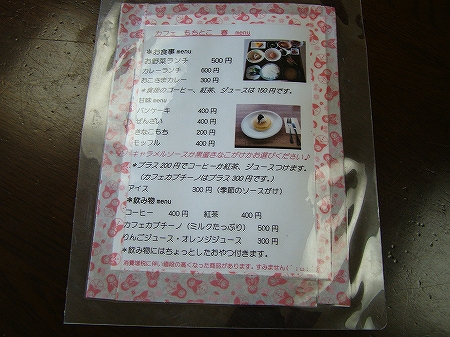 カフェ もちとこ 春 menu
*お食事 menu
お野菜ランチ 500 円
カレーランチ 600 円
おこさまカレー 300 円
*食後のコーヒー、紅茶、ジュースは 150 円です。
甘味 menu
パンケーキ 400 円
ぜんざい 400 円
きなこもち 200 円
モッフル 400 円
キャラメルソースか黒蜜きなこがけかお選びください♪
*プラス 200 円でコーヒーか紅茶、ジュースつけます。
(カフェカプチーノはプラス 300 円です。)
アイス 300 円 (季節のソースがけ)
*飲み物 menu
コーヒー 400 円 紅茶 400 円
カフェカプチーノ (ミルクたっぷり) 500 円
りんごジュース・オレンジジュース 300 円
*飲み物にはちょっとしたおやつ付きます。
消費増税に伴い値段の高くなった商品があります。すみません